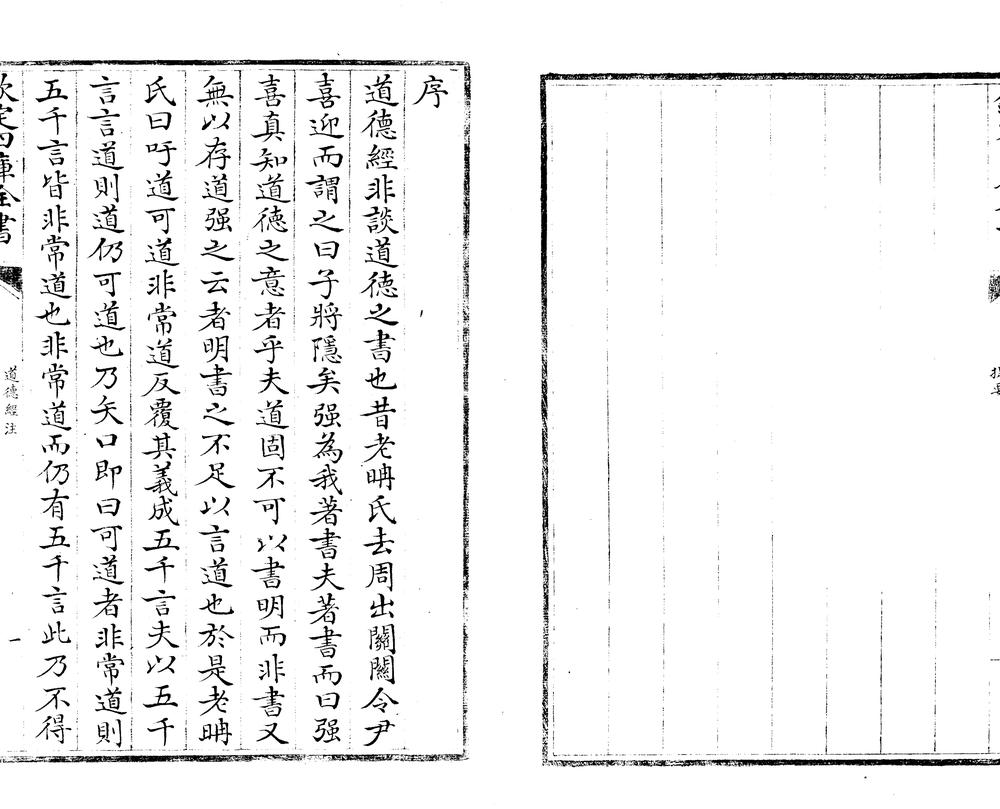 序
道德經非談道德之書也昔老聃氏去周出關關令尹
喜迎而謂之曰子將隱矣强為我著書夫著書而曰强
喜真知道德之意者乎夫道固不可以書明而非書又
無以存道强之云者明書之不足以言道也於是老聃
氏曰吁道可道非常道反覆其義成五千言夫以五千
言言道則道仍可道也乃矢口即曰可道者非常道則
五千言皆非常道也非常道而仍有五千言此乃不得
欽定四庫全書
道德經注
一